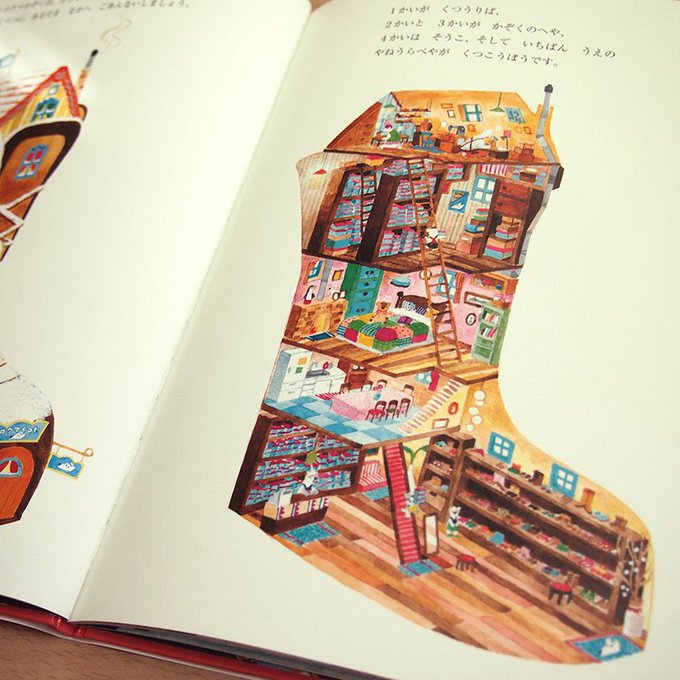 なかへ ごあんないしましょう。
1かいが くつうりば、
2かいと 3かいが かぞくのへや、
4かいは そうこ、そして いちばん うえの
やねうらべやが くつこうぼうです。